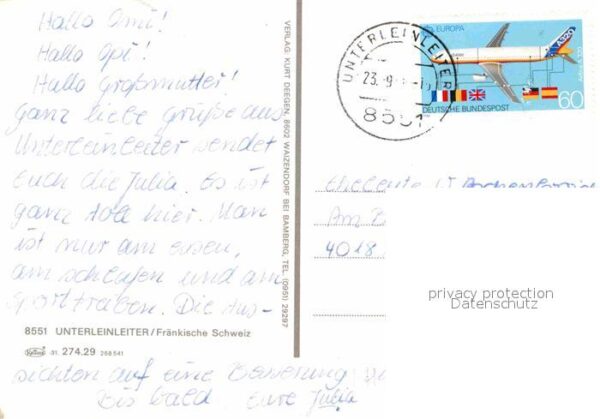 Hallo Omi!
Hallo Opi!
Hallo Großmutter!
Ganz liebe Grüße aus
Unterleinleiter sendet
Euch die Julia. Es ist
ganz toll hier. Man
ist nur am essen,
am schlafen und am
Sporttreiben. Die Aus-
8551 UNTERLEINLEITER/Fränkische Schweiz
31. 274.29 268 541
sichten auf eine Besserung
Bis bald. Eure Julia
VERLAG: KURT DEEGEN, 8602 WAIZENDORF BEI BAMBERG, TEL. (0951) 29297
UNTERLEINLEITER
23.-9.
8551
EUROPA
A320
Airbus A 320
60
DEUTSCHE BUNDESPOST
Am
4018
privacy protection
Datenschutz